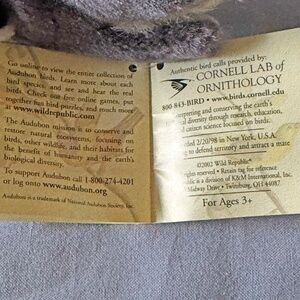 Go online to view the entire collection of
Audubon birds. Learn more about each
bird species, and see and hear the real
birds. Check out free online games, put
together fun bird puzzles, and much more
at www.wildrepublic.com
The Audubon mission is to conserve and
restore natural ecosystems, focusing on
birds, other wildlife, and their habitats for
the benefit of humanity and the earth's
biological diversity.
To support Audubon call 1-800-274-4201
or log onto www.Audubon.org
Audubon is a trademark of National Audubon Society, Inc.
Authentic bird calls provided by:
CORNELL LAB of
ORNITHOLOGY
800-843-BIRD • www.birds.cornell.edu
and conserving the earth's
diversity through research, education,
citizen science focused on birds.
2/20/98 in New York, U.S.A.
to defend territory and attract a mate
©2002 Wild Republic®
rights reserved • Retain tag for reference
is a division of K&M International, Inc.
Midway Drive • Twinsburg, OH 44087
For Ages 3+